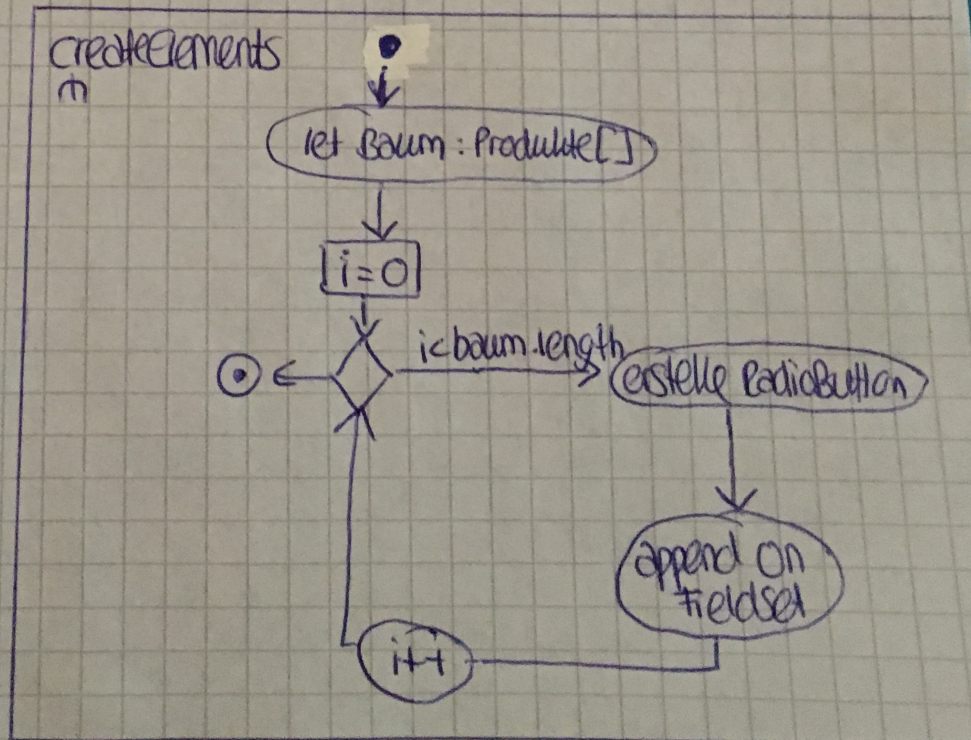 createElements
let Baum : Produkte[]
i=0
i<baum.length
erstelle RadioButton
append on
Fieldset
i++